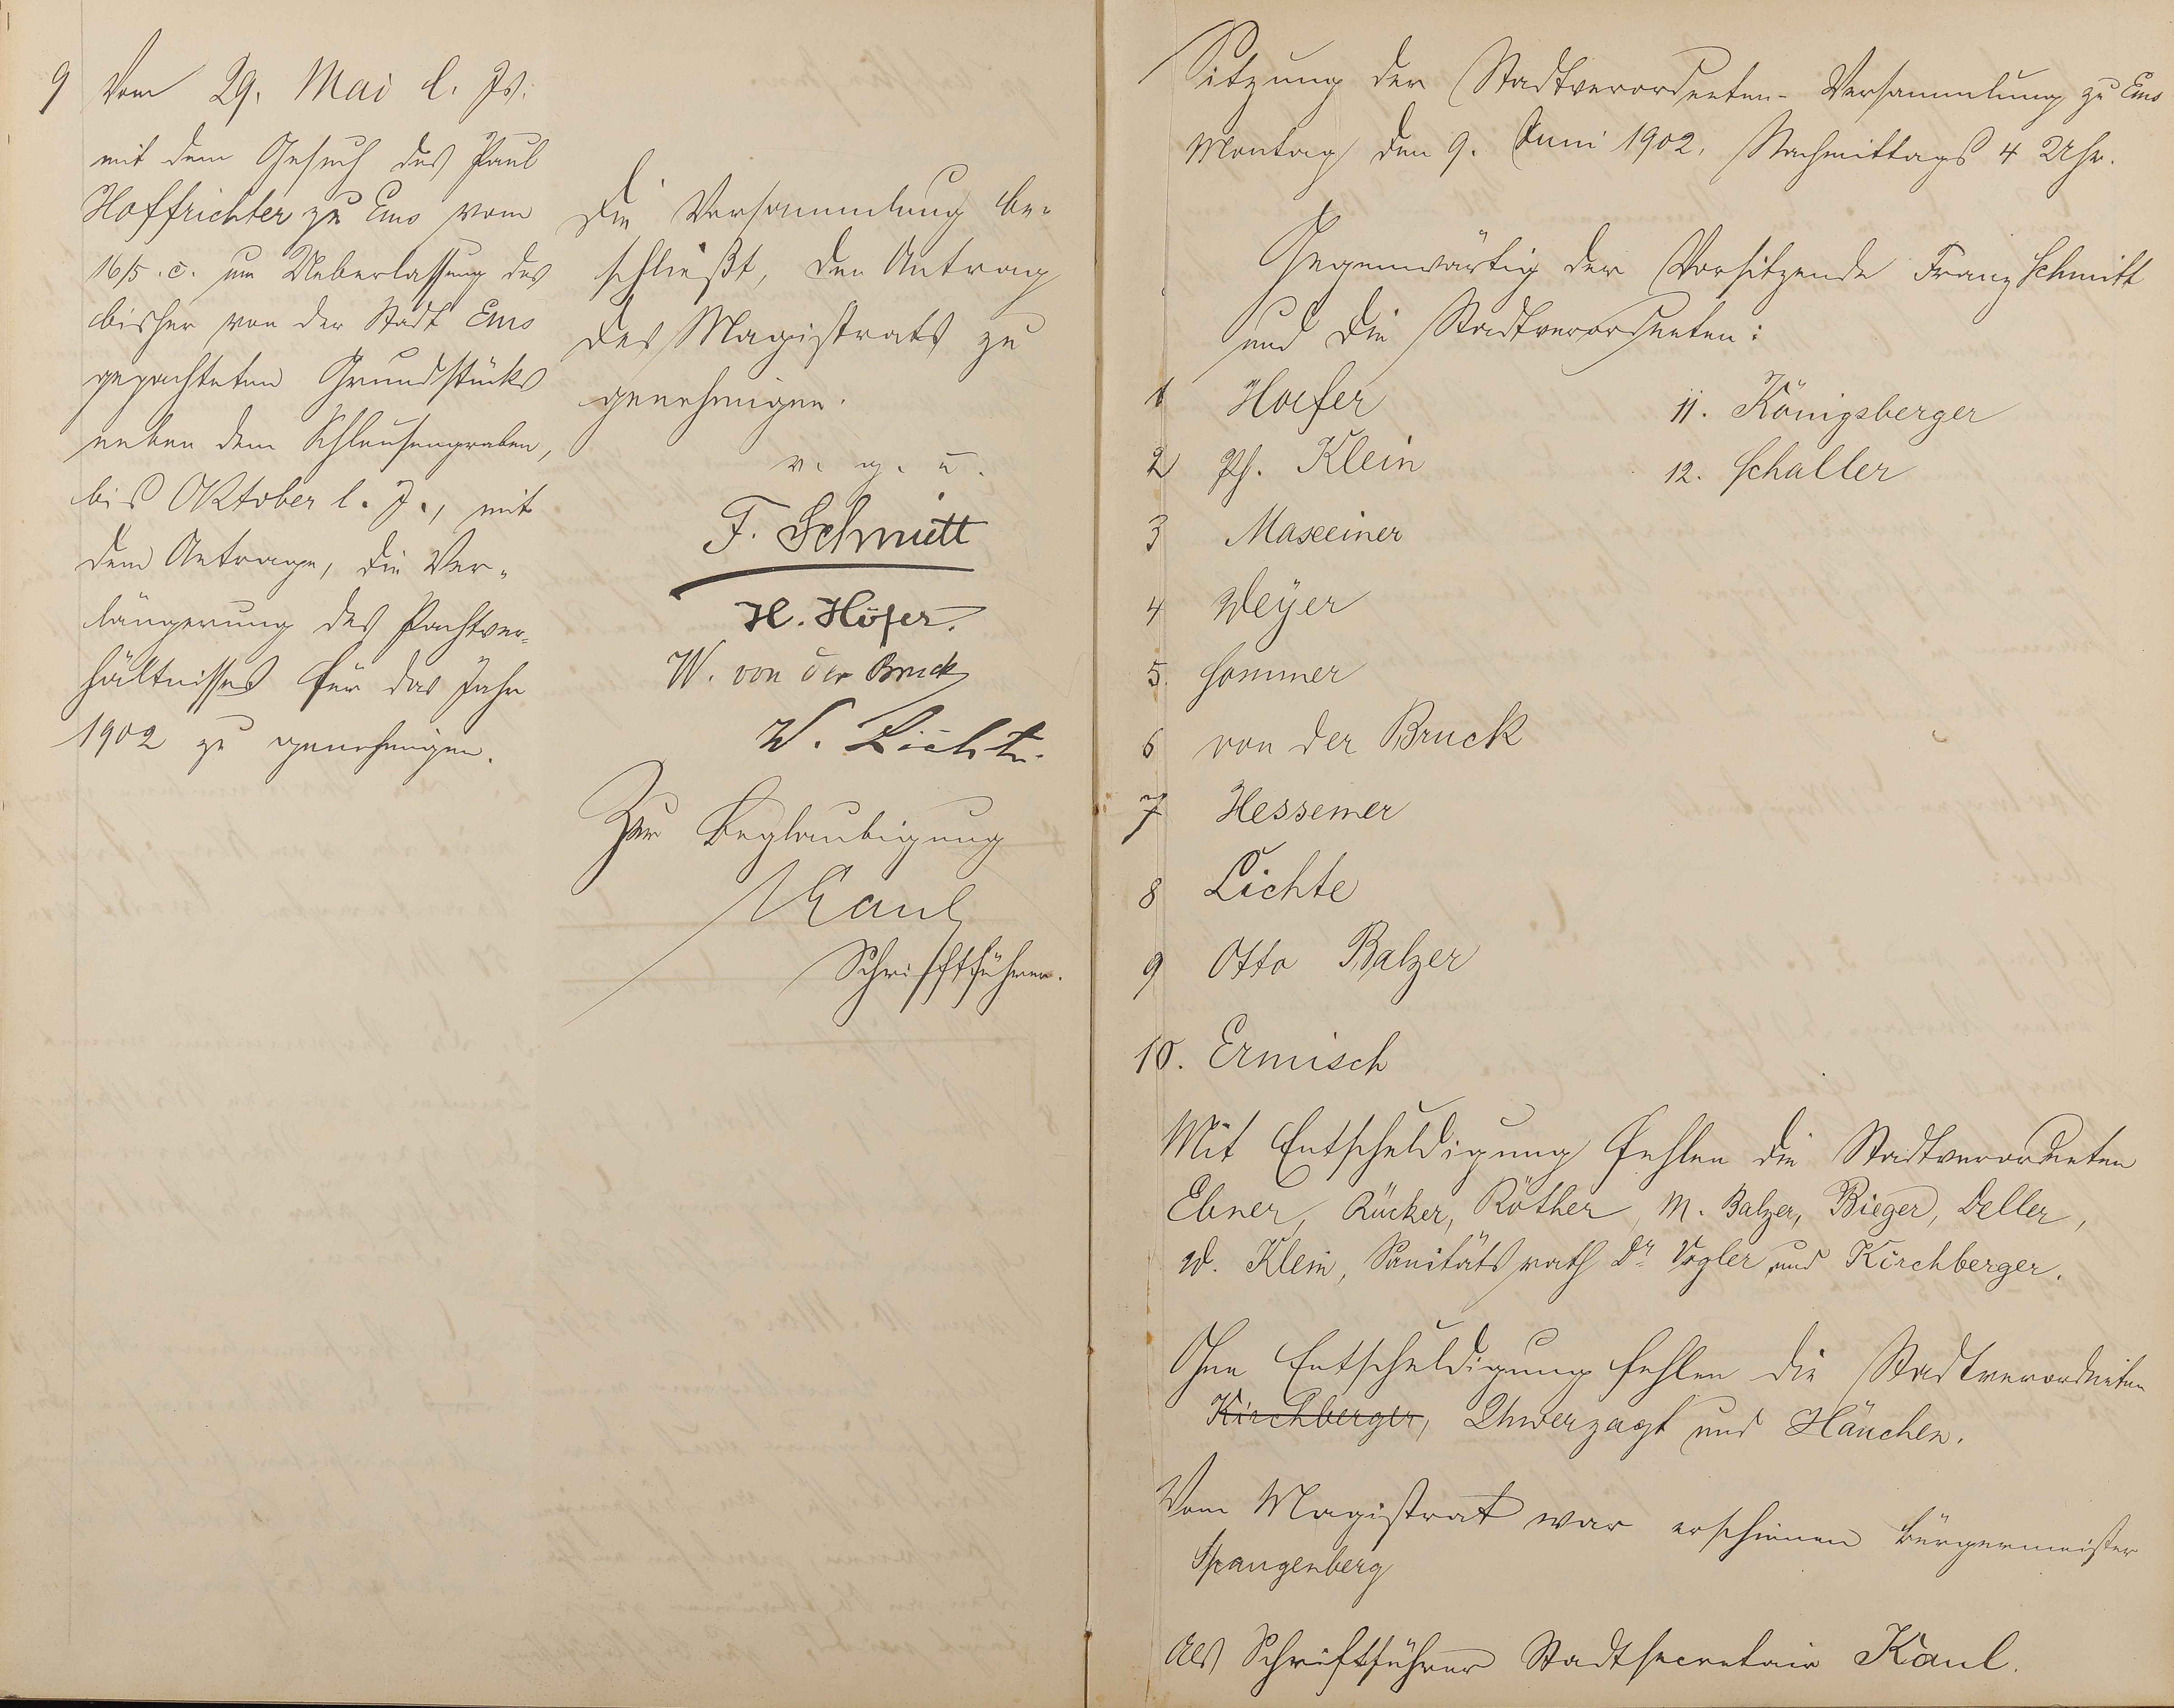 9 Vom 29. Mai l. Js.
mit dem Gesuch des Paul
Hoffrichter zu Ems vom
16/5. c. um Ueberlassung des
bisher von der Stadt Ems
gepachteten Grundstücks
neben dem Schleusengraben,
bis Oktober l. J., mit
dem Antrage, die Ver-
längerung des Pachtver-
hältnisses für das Jahr
1902 zu genehmigen.
Die Versammlung be-
schließt, den Antrag
des Magistrats zu
genehmigen.
v. g. u.
F. Schmitt
H. Höfer.
W. von der Bruck
W. Lichte.
Zur Beglaubigung
Kaul
Schriftführer.
Sitzung der Stadtverordneten-Versammlung zu Ems
Montag den 9. Juni 1902, Nachmittags 4 Uhr.
Gegenwärtig der Vorsitzende Franz Schmitt
und die Stadtverordneten:
1 Hoefer
2 Ph. Klein
3 Maxeiner
4 Weyer
5. Sommer
6 von der Bruck
7 Hessemer
8 Lichte
9 Otto Balzer
10. Ermisch
11. Königsberger
12. Schaller
Mit Entschuldigung fehlen die Stadtverordneten
Ebner, Rücker, Röther, M. Balzer, Bieger, Deller,
W. Klein, Sanitätsrath Dr. Vogler und Kirchberger.
Ohne Entschuldigung fehlen die Stadtverordneten
Kirchberger, Unverzagt und Hänchen.
Vom Magistrat war erschienen Bürgermeister
Spangenberg
Als Schriftführer Stadtsecretair Kaul.